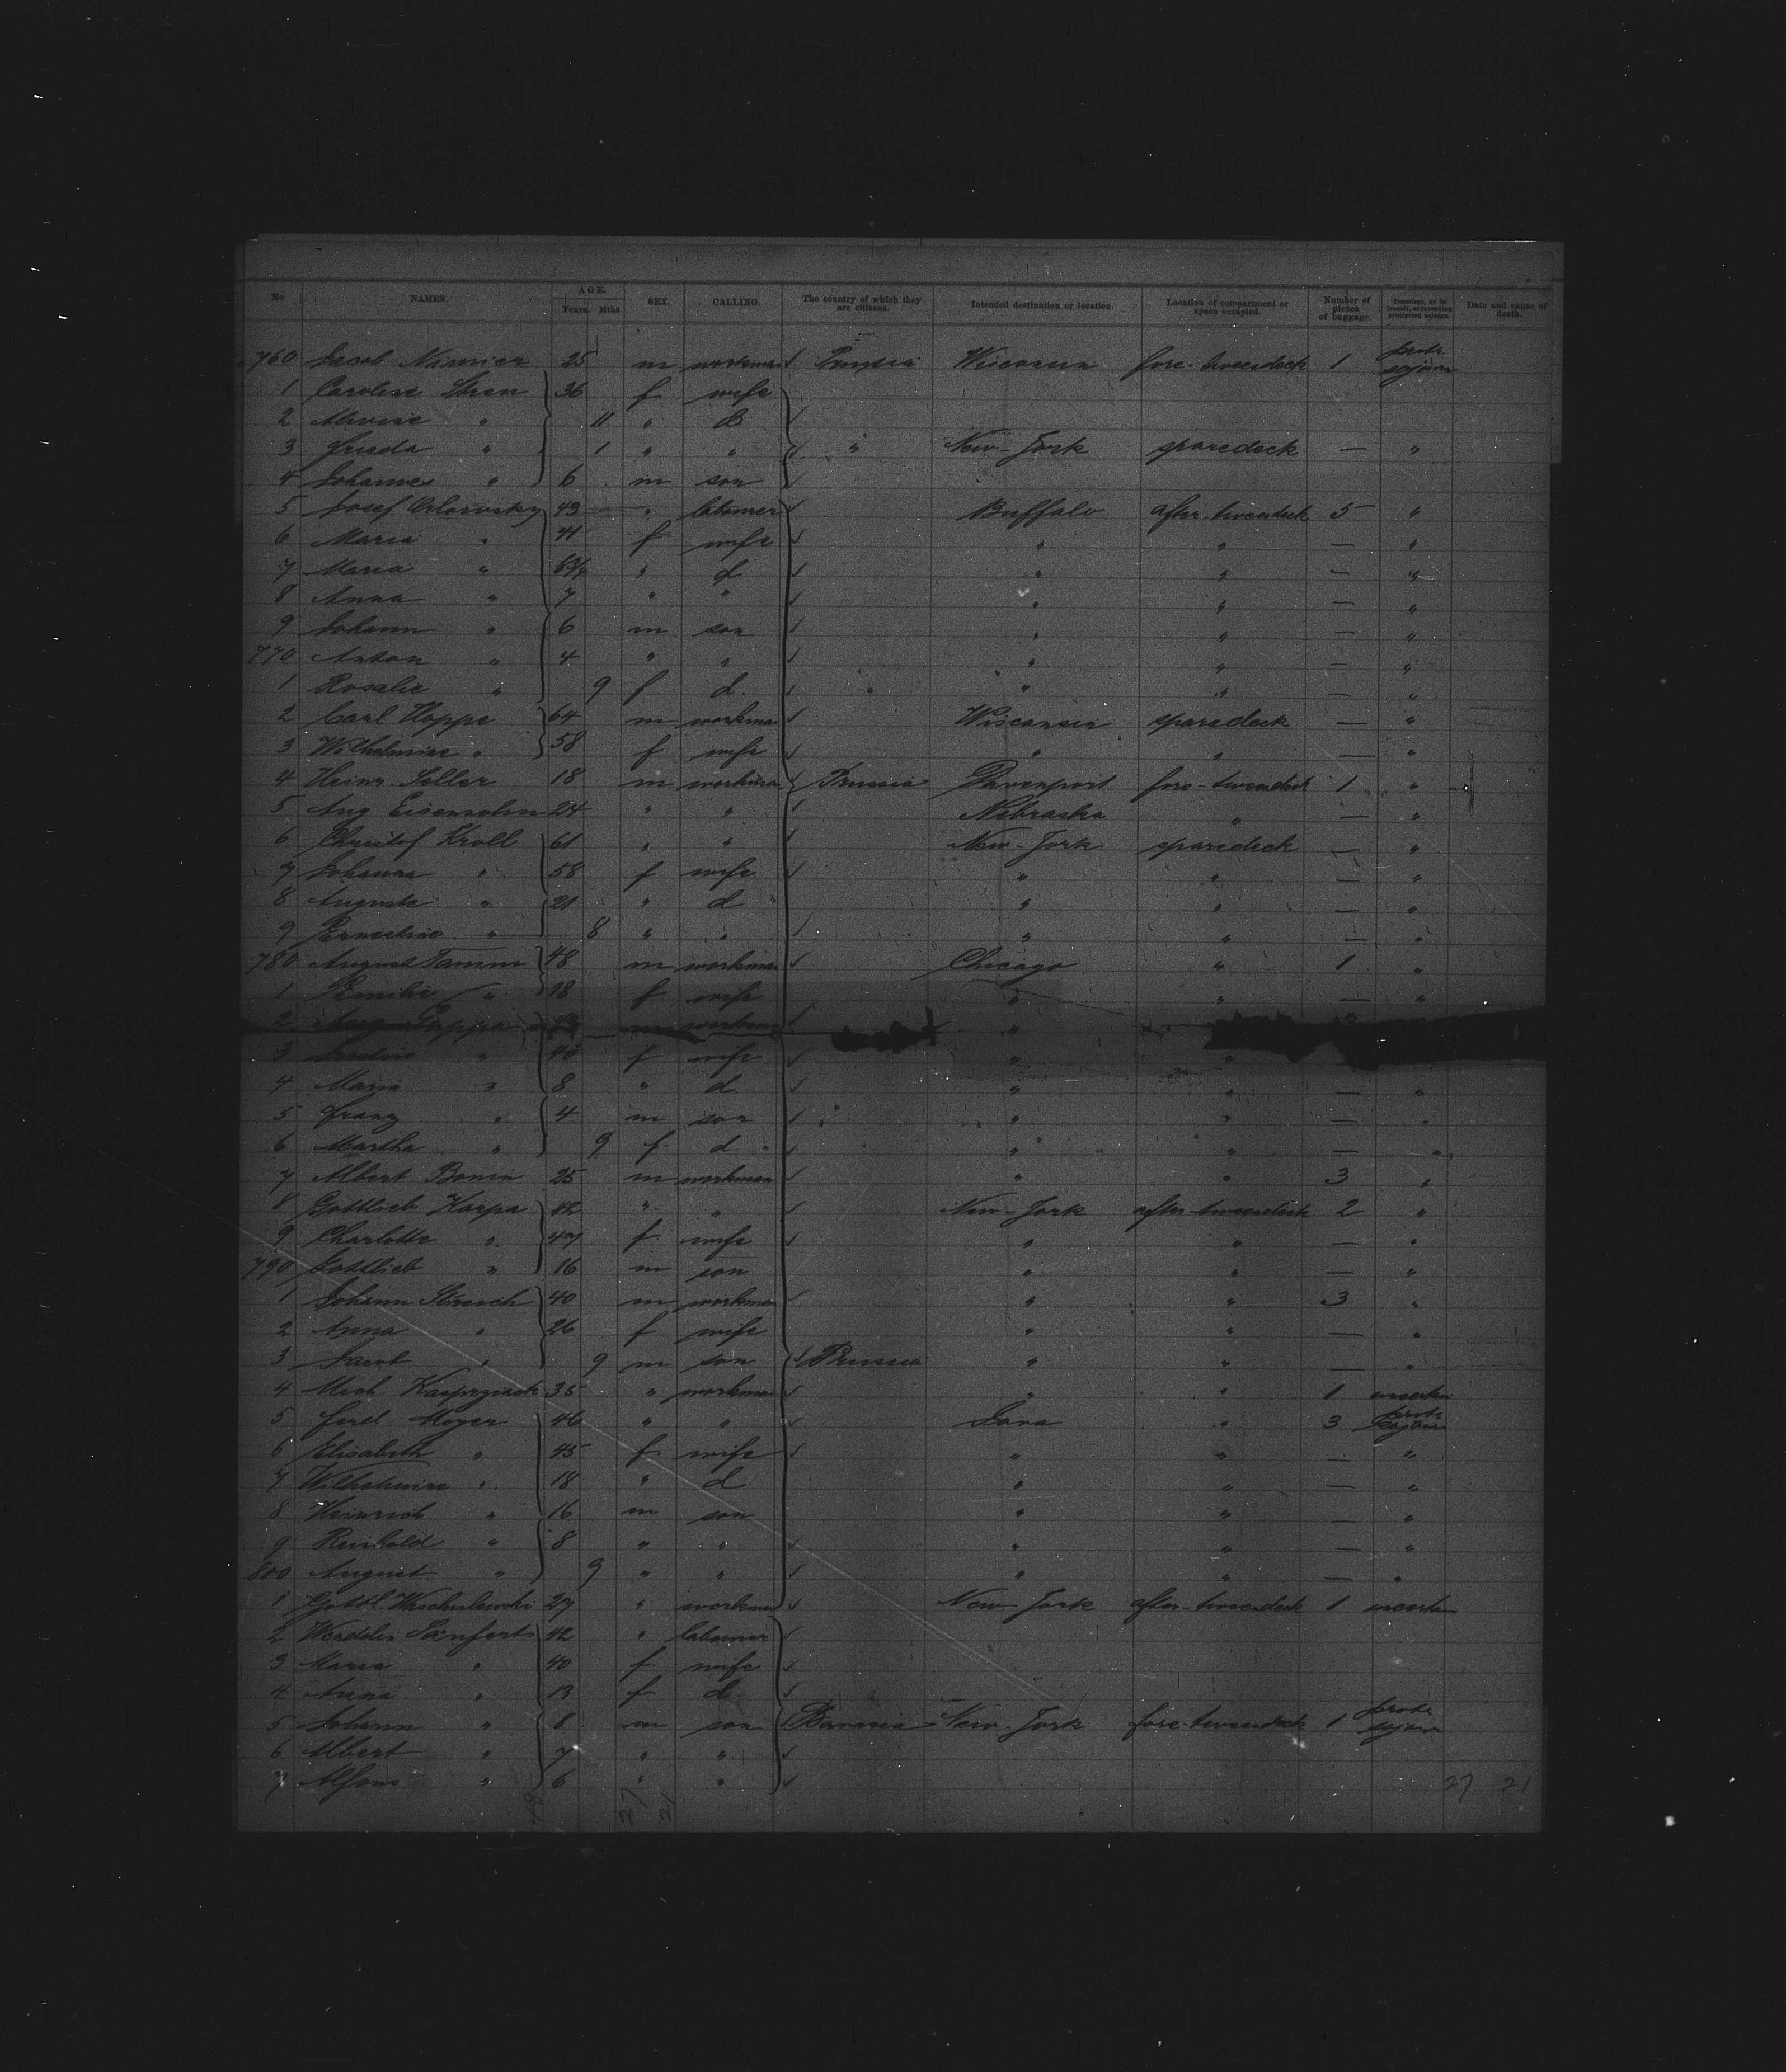 No NAMES. AGE. Years Mths. SEX. CALLING. The country of which they are citizens. Intended destination or location. Location of compartment or space occupied. Number of pieces of baggage. Transient, or in transit, or intending protracted sojourn. Date and cause of death.
760 Jacob 25 m workman Prussia Wisconsin fore-tweendeck 1 protr sojourn
1 Caroline 36 f wife
2 " 11 " d
3 Frieda " 1 " " " New-York sparedeck — "
4 Johannes " 6 m son
5 Josef Orlowsky 43 " labourer Buffalo after-tweendeck 5 "
6 Maria " 41 f wife " " — "
7 Maria " " d " " — "
8 Anna " 7 " " " " — "
9 Johann " 6 m son " " — "
770 Anton " 4 " " " " — "
1 Rosalie " 9 f d. " " — "
2 Carl Hoppe 64 m workman Wisconsin sparedeck — "
3 Wilhelmine " 58 f wife " " — "
4 Heinr. Soller 18 m workman Prussia Davenport fore-tweendeck 1 "
5 Aug Eisensohn 24 " " Nebraska " — "
6 Christof Kroll 61 " " New-York sparedeck — "
7 Johanna " 58 f wife " " — "
8 Auguste " 21 " d " " — "
9 Ernestine " 8 " " " " — "
780 August Tamm 48 m workman Chicago " 1 "
1 Emilie " 18 f wife " " — "
2 m workman "
3 " 40 f wife " "
4 Maria " 8 " d " " — "
5 Franz " 4 m son " " — "
6 Martha " 9 f d " " — "
7 Albert Bonin 25 m workman " " 3 "
8 Gottlieb Karpa 42 " " New-York after-tweendeck 2 "
9 Charlotte " 47 f wife " " — "
790 Gottlieb " 16 m son " " — "
1 Johann 40 m workman " " 3 "
2 Anna " 26 f wife " " — "
3 Jacob " 9 m son Prussia " " — "
4 Mich. Kasprziack 35 " workman " " 1 uncertain
5 Ferd Moyer 46 " " " 3 protr sojourn
6 Elisabeth " 45 f wife " " — "
7 Wilhelmine " 18 " d " " — "
8 Heinrich " 16 m son " " — "
9 Reinhold " 8 " " " " — "
800 August " 9 " " " " — "
1 Gottl. 27 " workman New-York after-tweendeck 1 uncertain
2 42 " labourer
3 Maria " 40 f wife
4 Anna " 13 f d
5 Johann " 8 m son Bavaria New-York fore-tweendeck 1 protr sojourn
6 Albert " 7 " "
7 Alfons " 6 " " 27 21
48 27 21